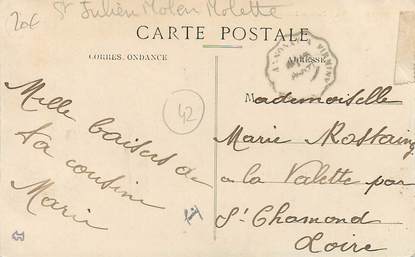 20€
St Julien Molen Molette
CARTE POSTALE
CORRES. ONDANCE
ADRESSE
ANNONAY A FIRMINY
42
Mille baisers de
ta cousine
Marie
T
Mademoiselle
Marie Rostaing
a la Valette par
St Chamond
Loire